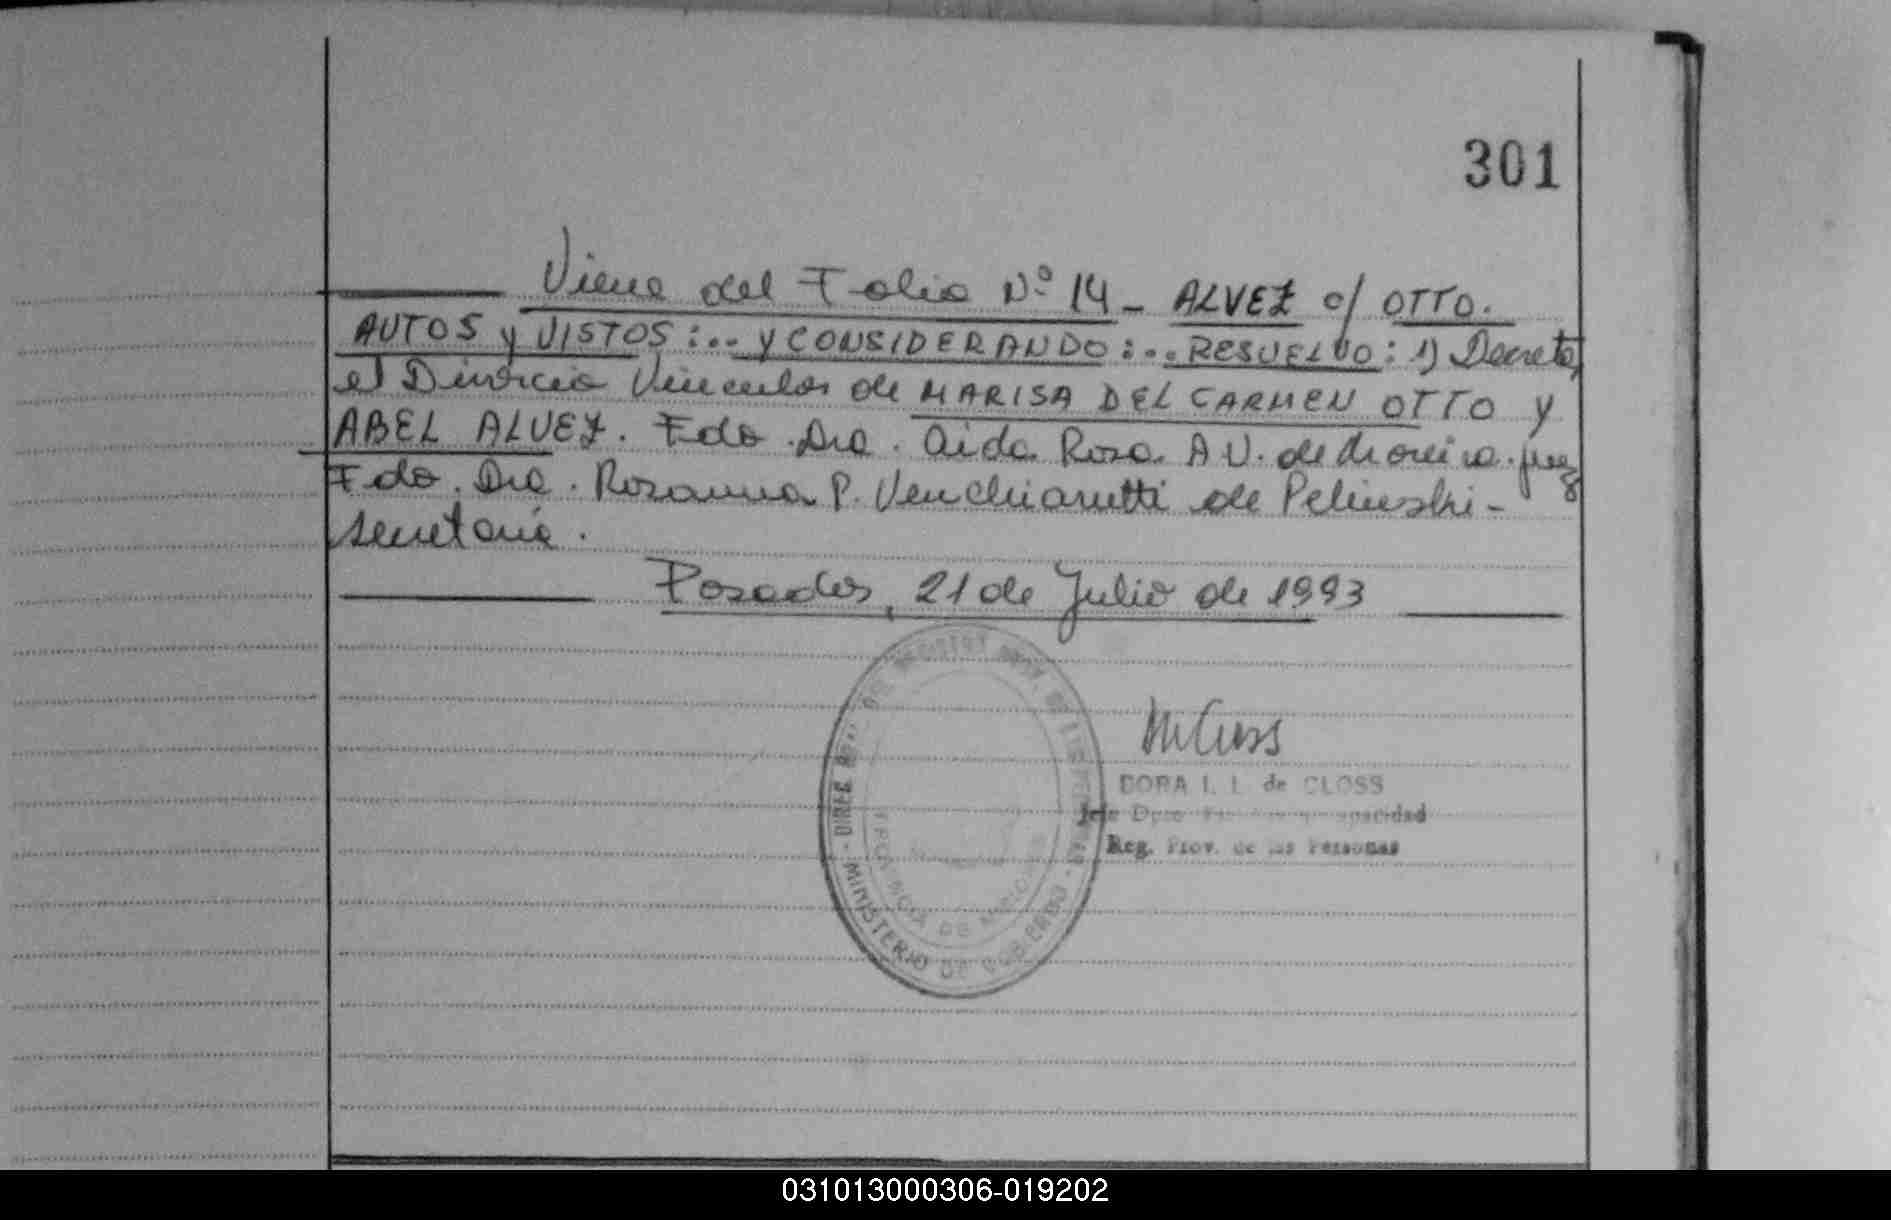 301
Viene del Folio Nº 14 - ALVEZ c/ OTTO.
AUTOS y VISTOS:... y CONSIDERANDO:... RESUELVO: 1) Decretar
el Divorcio Vincular de MARISA DEL CARMEN OTTO y
ABEL ALVEZ. Fdo. Dra. Aida Rosa A.V. de Moreira. juez
Fdo. Dra. Rosanna P. Venchiarutti de Pelinski -
secretaria.
Posadas, 21 de Julio de 1993
DORA I. L. de CLOSS
Jefe Dpto. Capacidad
Reg. Prov. de las Personas
MINISTERIO DE GOBIERNO
PROVINCIA DE MISIONES
031013000306-019202